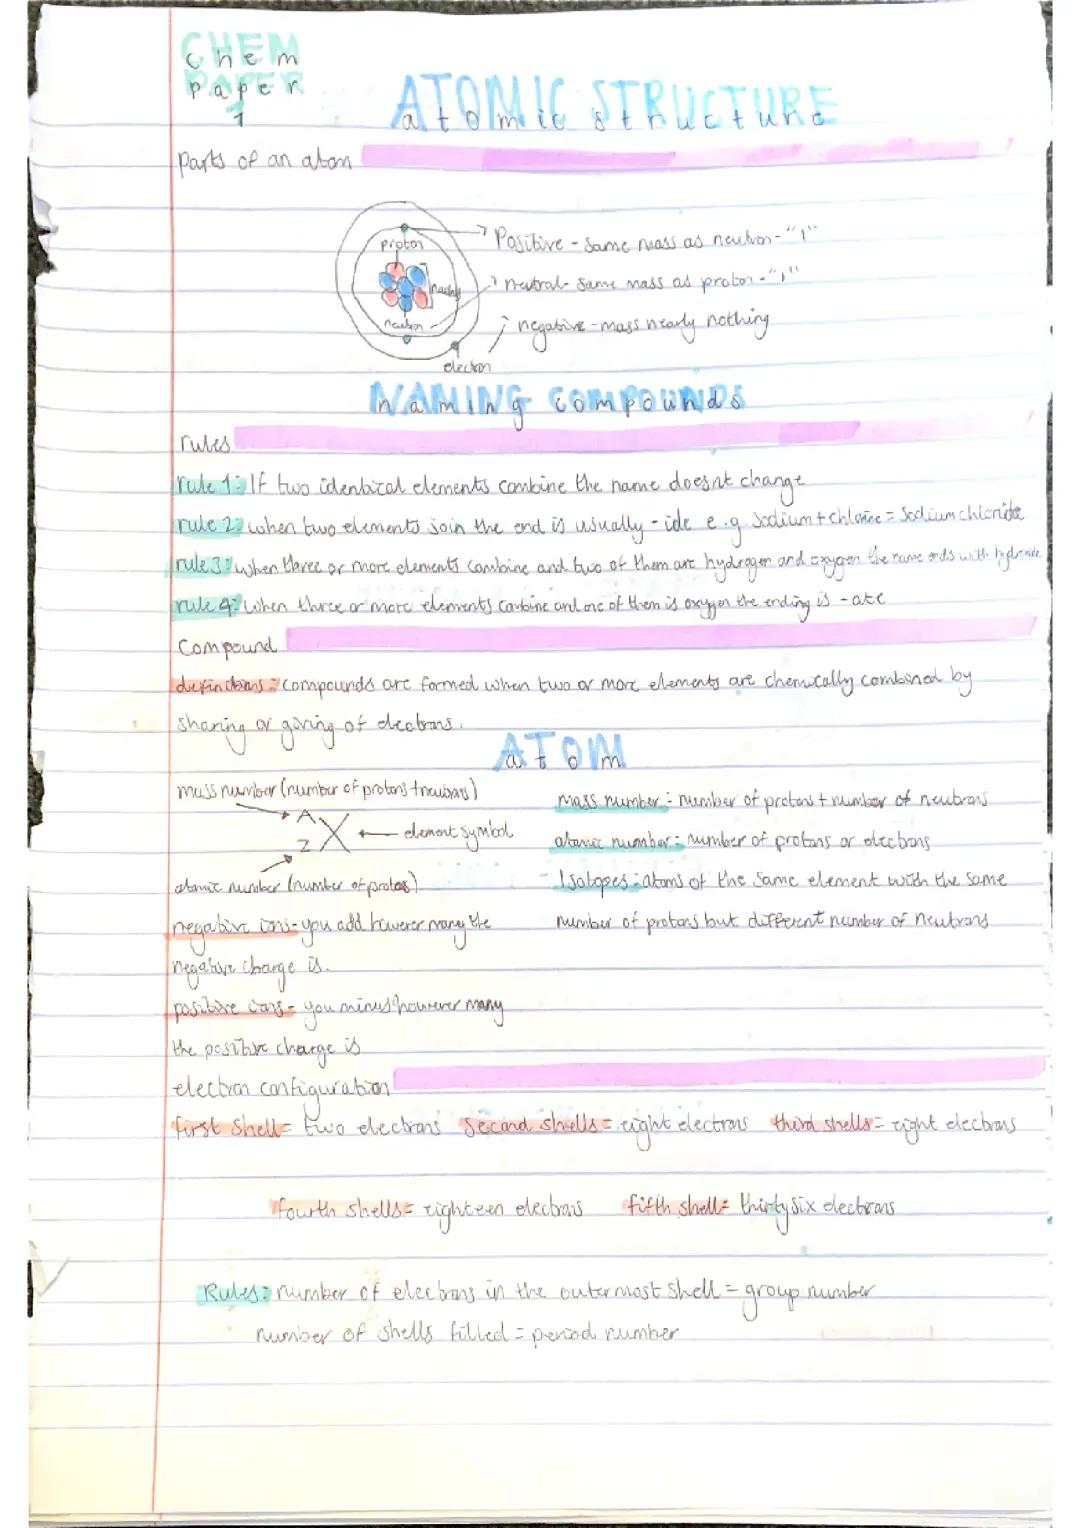 CHEM
chem
PAPER
paper
1
ATOMIC STRUCTURE
atomic structure
parts of an atom
proton
Positive - same mass as neutron - "1"
nucleus
neutral - same mass as proton - "1"
neutron
negative - mass nearly nothing
electron
NAMING COMPOUNDS
naming compounds
rules
rule 1: If two identical elements combine the name doesnt change
rule 2: when two elements join the end is usually - ide e.g Sodium + chlorine = Sodium chloride
rule 3: when three or more elements combine and two of them are hydrogen and oxygen the name ends with hydroxide
rule 4: when three or more elements combine and one of them is oxygen the ending is - ate
Compound
definitions: compounds are formed when two or more elements are chemically combined by
sharing or giving of electrons.
ATOM
atom
mass number (number of protons + neutrons)
A
X
Z
element symbol
atomic number (number of protons)
mass number: number of protons + number of neutrons
atomic number: number of protons or electrons
Isotopes: atoms of the same element with the same
number of protons but different number of neutrons
negative ions - you add however many the
negative charge is.
positive ions - you minus however many
the positive charge is
electron configuration
first shell = two electrons second shells = eight electrons third shells = eight electrons
fourth shells = eighteen electrons fifth shell = thirty six electrons
Rules: number of electrons in the outermost shell = group number
number of shells filled = period number